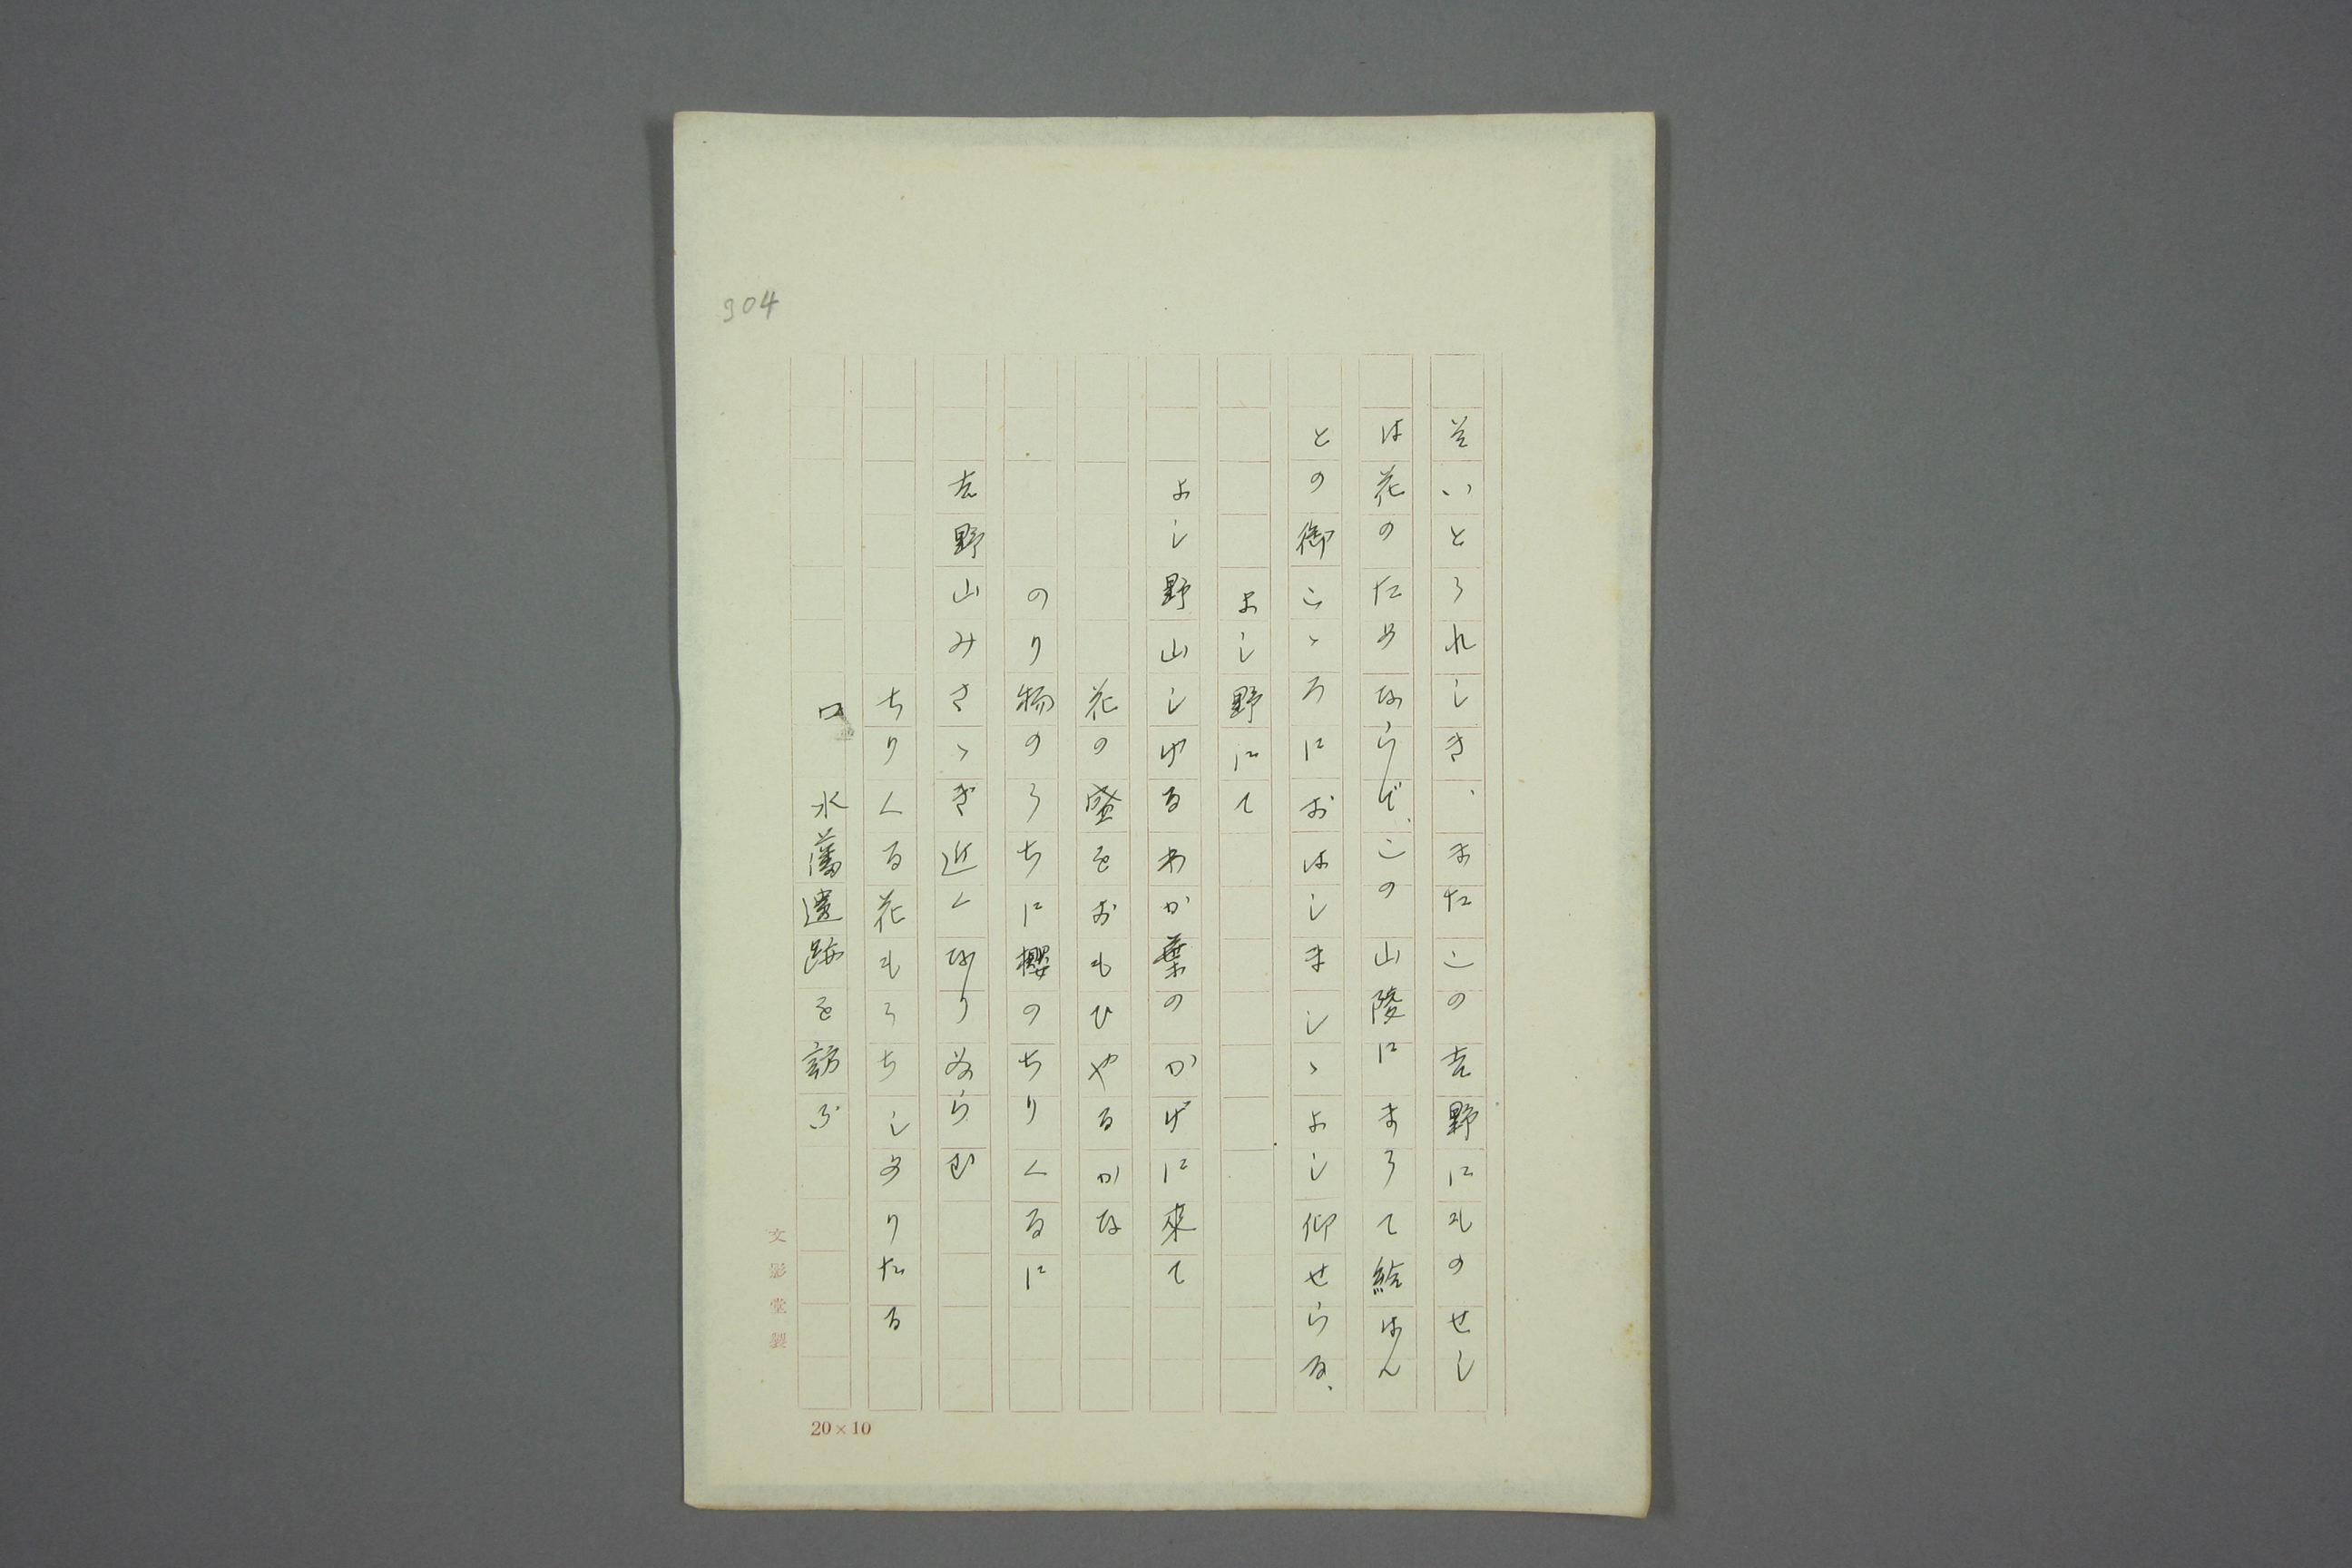 904
そいとうれしき、またこの吉野にものせし
は花のためならで、この山陵にまうて給はん
との御こゝろにおはしましゝよし仰せらる、
よし野にて
よし野山しげるわか葉のかげに來て
花の盛をおもひやるかな
のり物のうちに櫻のちりくるに
吉野山みさゝぎ近くなりぬらむ
ちりくる花もうちしめりたる
口 水藩遺跡を訪ふ
文影堂製
20×10